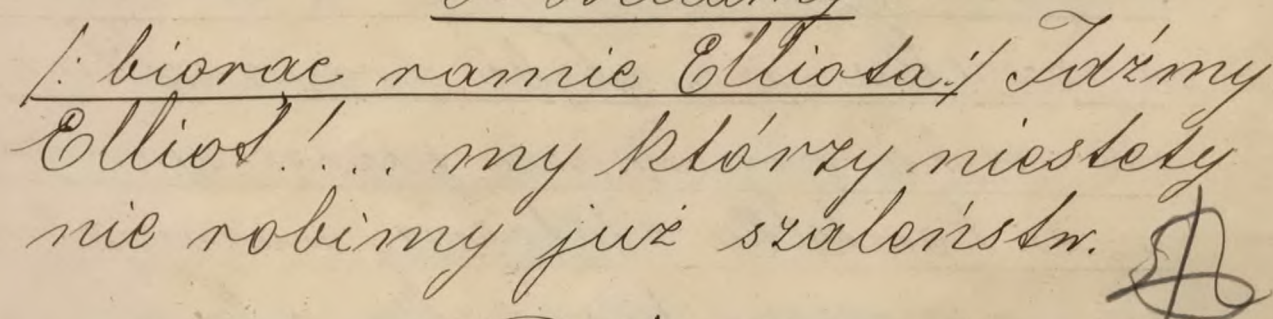 /: biorac ramie Elliota :/ Idźmy
Elliot!... my którzy niestety
nie robimy już szaleństw.